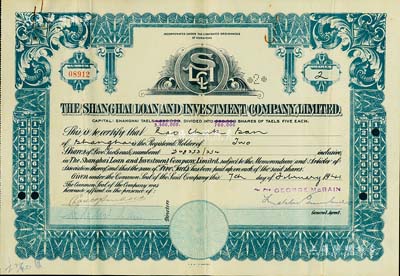 INCORPORATED UNDER THE COMPANIES ORDINANCES
OF HONGKONG
08912
2
2
THE SHANGHAI LOAN AND INVESTMENT COMPANY, LIMITED.
CAPITAL: SHANGHAI TAELS DIVIDED INTO SHARES OF TAELS FIVE EACH.
This is to certify that
of Shanghai is the Registered Holder of Two
Shares of Five Taels each, numbered inclusive,
in The Shanghai Loan and Investment Company, Limited, subject to the Memorandum and Articles of
Association thereof, and that the sum of Five Taels has been paid up on each of the said shares.
Given under the Common Seal of the said Company this 7th day of February 1941
The Common Seal of the Company was
hereunto affixed in the presence of
GEORGE McBAIN
Directors
General Agent.